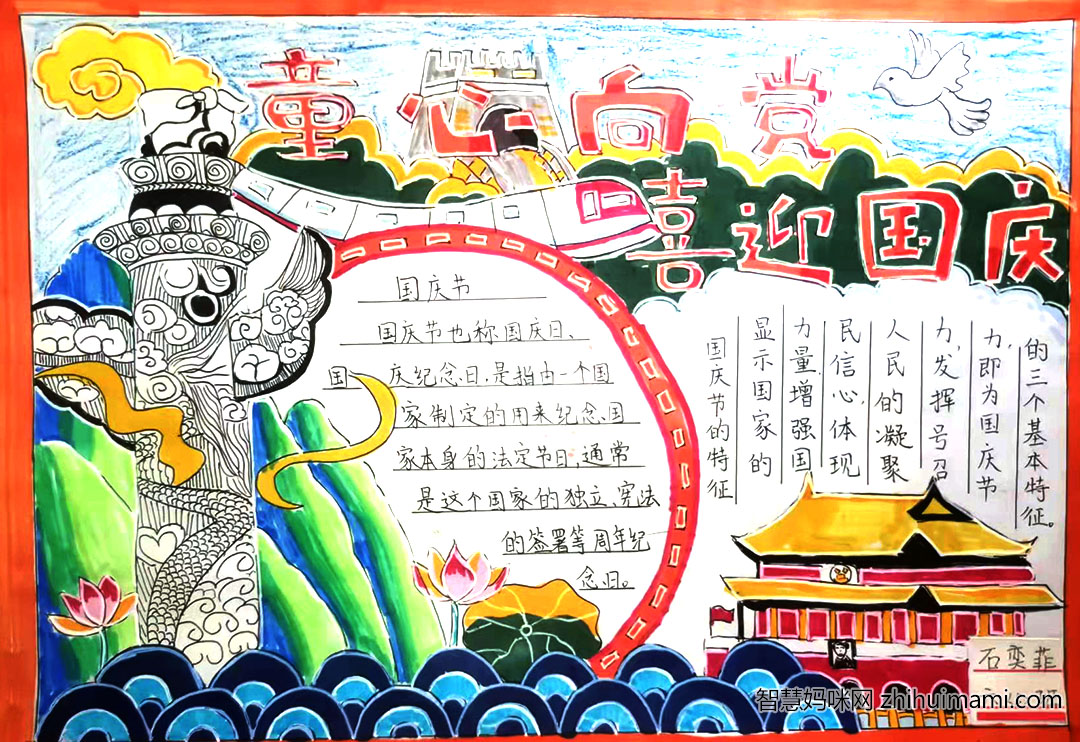 童心向党
喜迎国庆
国庆节
国庆节也称国庆日、
国 庆纪念日,是指由一个国
家制定的用来纪念国
家本身的法定节日,通常
是这个国家的独立、宪法
的签署等周年纪
念日。
国庆节的特征
显示国家的
力量增强国
民信心,体现
人民的凝聚
力,发挥号召
力,即为国庆节
的三个基本特征。
石奕菲
智慧妈咪网 zhihuimami.com